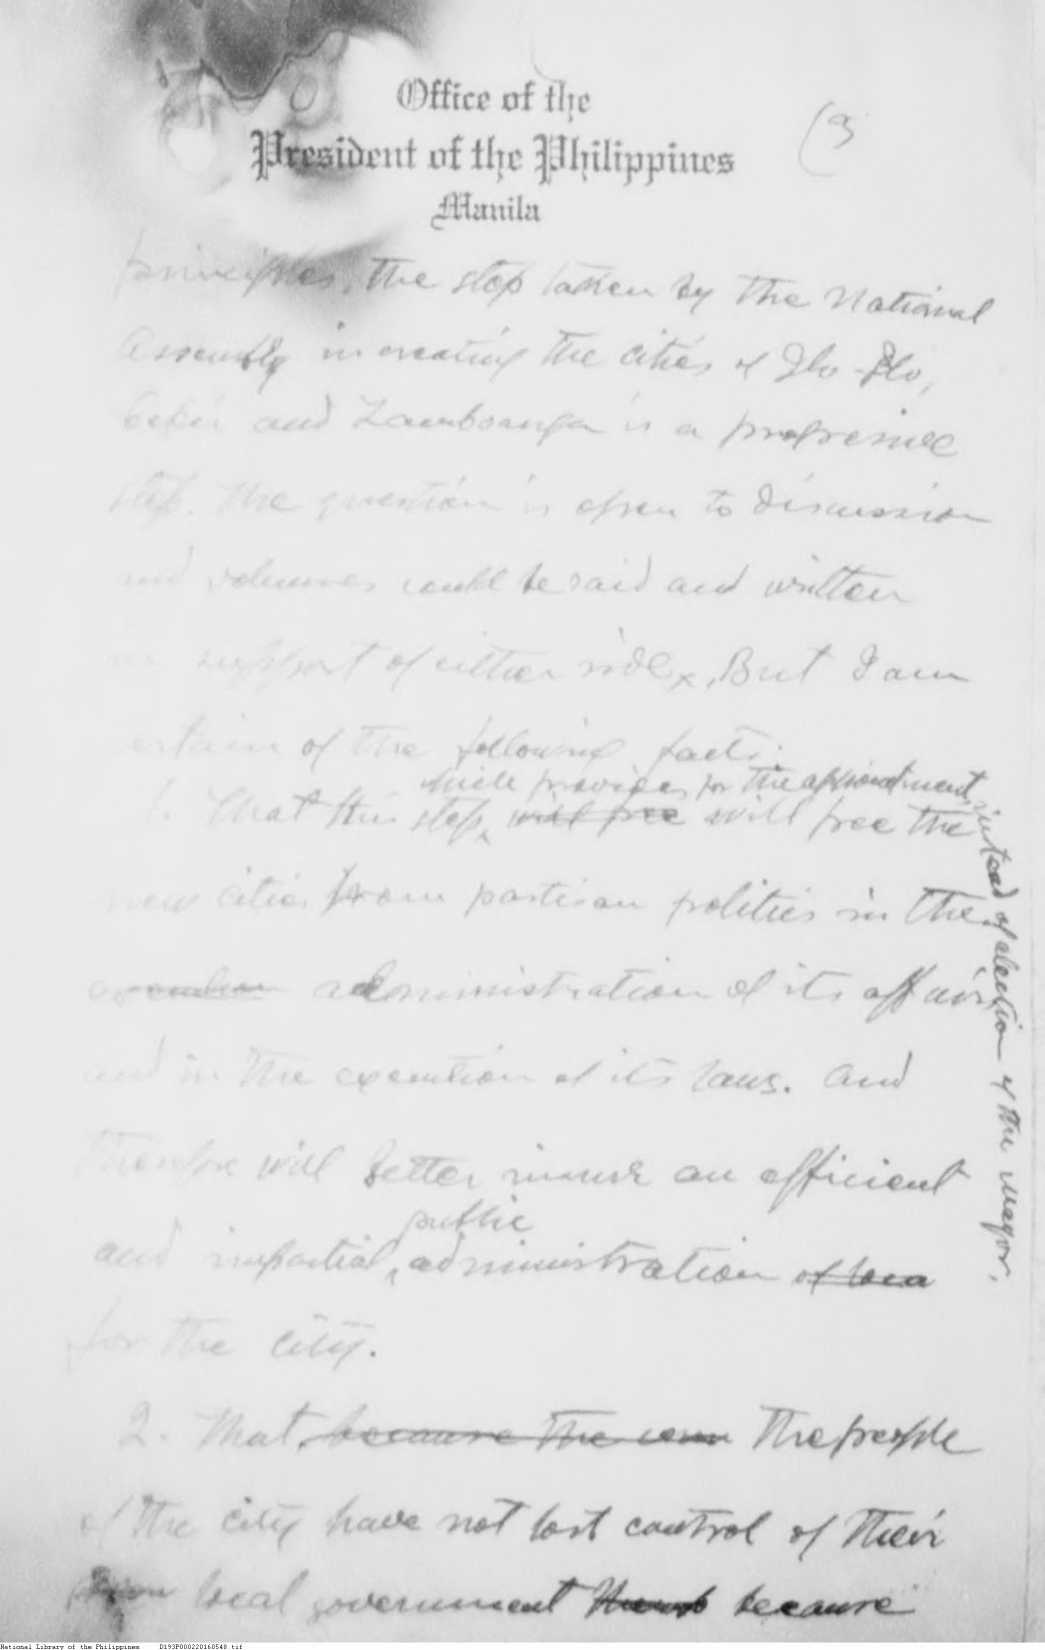 Office of the
President of the Philippines
Manila
(3
principles, the step taken by the National
Assembly in creating the cities of Ilo-Ilo,
Cebu and Zamboanga is a progressive
step. The question is open to discussion
and volumes could be said and written
in support of either side. But I am
certain of the following facts:
which provides for the appointment instead of election of the mayor.
1. That this step, will free will free the
new cities from partisan politics in the
administration of its affairs
and in the execution of its laws. And
therefore will better insure an efficient
public
and impartial administration of loca
for the city.
2. That because the The people
of the city have not lost control of their
local government because
National Library of the Philippines D193P000220160548 tif